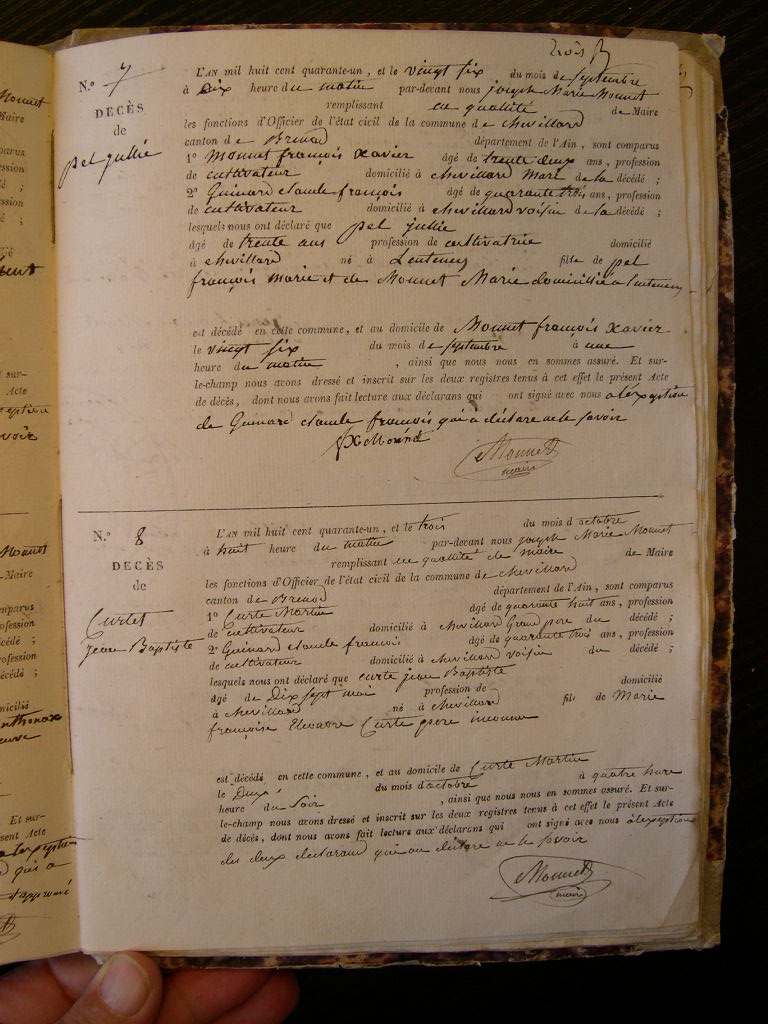 trois
N.º 7
DECÈS
de
pel jullie
L'AN mil huit cent quarante-un, et le vingt six du mois de septembre
à Dix heure du matin par-devant nous joseph Marie Monnet
remplissant en quallité de Maire
les fonctions d'Officier de l'état civil de la commune de chevillard
canton de Brenod département de l'Ain, sont comparus
1º Monnet françois Xavier âgé de trente deux ans, profession
de cultivateur domicilié à chevillard Mari de la décédé ;
2º Guinard claude françois âgé de quarante trois ans, profession
de cultivateur domicilié à chevillard voisin de la décédé ;
lesquels nous ont déclaré que pel jullie
âgé de trente ans profession de cultivatrice domicilié
à chevillard né à Lentenay fille de pel
françois marie et de Monnet Marie domicilliée a lentenay
est décédé en cette commune, et au domicile de Monnet françois Xavier
le vingt six du mois de septembre à une
heure du matin , ainsi que nous nous en sommes assuré. Et sur-
le-champ nous avons dressé et inscrit sur les deux registres tenus à cet effet le présent Acte
de décès, dont nous avons fait lecture aux déclarans qui ont signé avec nous a lexeption
de Guinard claude françois qui a déclare ne le savoir
fX Monnet
Monnet
maire
N.º 8
DECÈS
de
Curtet
jean Baptiste
L'AN mil huit cent quarante-un, et le trois du mois d octobre
à huit heure du matin par-devant nous joseph Marie Monnet
remplissant en quallité de maire de Maire
les fonctions d'Officier de l'état civil de la commune de chevillard
canton de Brenod département de l'Ain, sont comparus
1º Curte Martin âgé de quarante huit ans, profession
de cultivateur domicilié à chevillard Grand pere du décédé ;
2º Guinard claude françois âgé de quarante trois ans, profession
de cultivateur domicilié à chevillard voisin du décédé ;
lesquels nous ont déclaré que curte jean Baptiste
âgé de Dix sept moi profession de domicilié
à chevillard né à chevillard fils de Marie
françoise Curte pere inconnu
est décédé en cette commune, et au domicile de Curte Martin
le Deux du mois d'octobre à quatre hure
heure du soir , ainsi que nous nous en sommes assuré. Et sur-
le-champ nous avons dressé et inscrit sur les deux registres tenus à cet effet le présent Acte
de décès, dont nous avons fait lecture aux déclarans qui ont signé avec nous a lexeption
des deux declarand qui on déclare ne le savoir
Monnet
maire